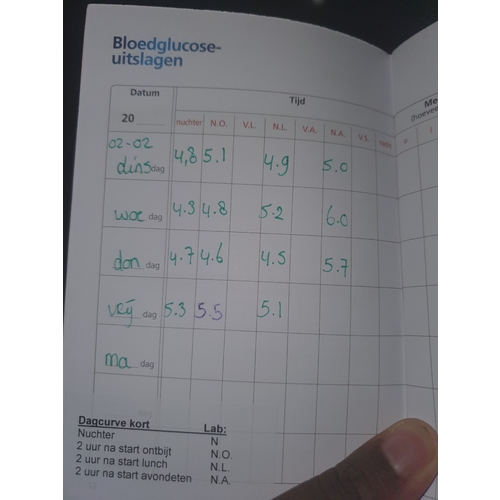 Bloedglucose-
uitslagen
Datum
Tijd
20
nuchter N.O. V.L. N.L. V.A. N.A. V.S. nacht
Me
(hoevee
02-02
dinsdag 4,8 5.1 4.9 5.0
woe dag 4.3 4.8 5.2 6.0
don dag 4.7 4.6 4.5 5.7
vrij dag 5.3 5.5 5.1
ma dag
Dagcurve kort Lab:
Nuchter N
2 uur na start ontbijt N.O.
2 uur na start lunch N.L.
2 uur na start avondeten N.A.